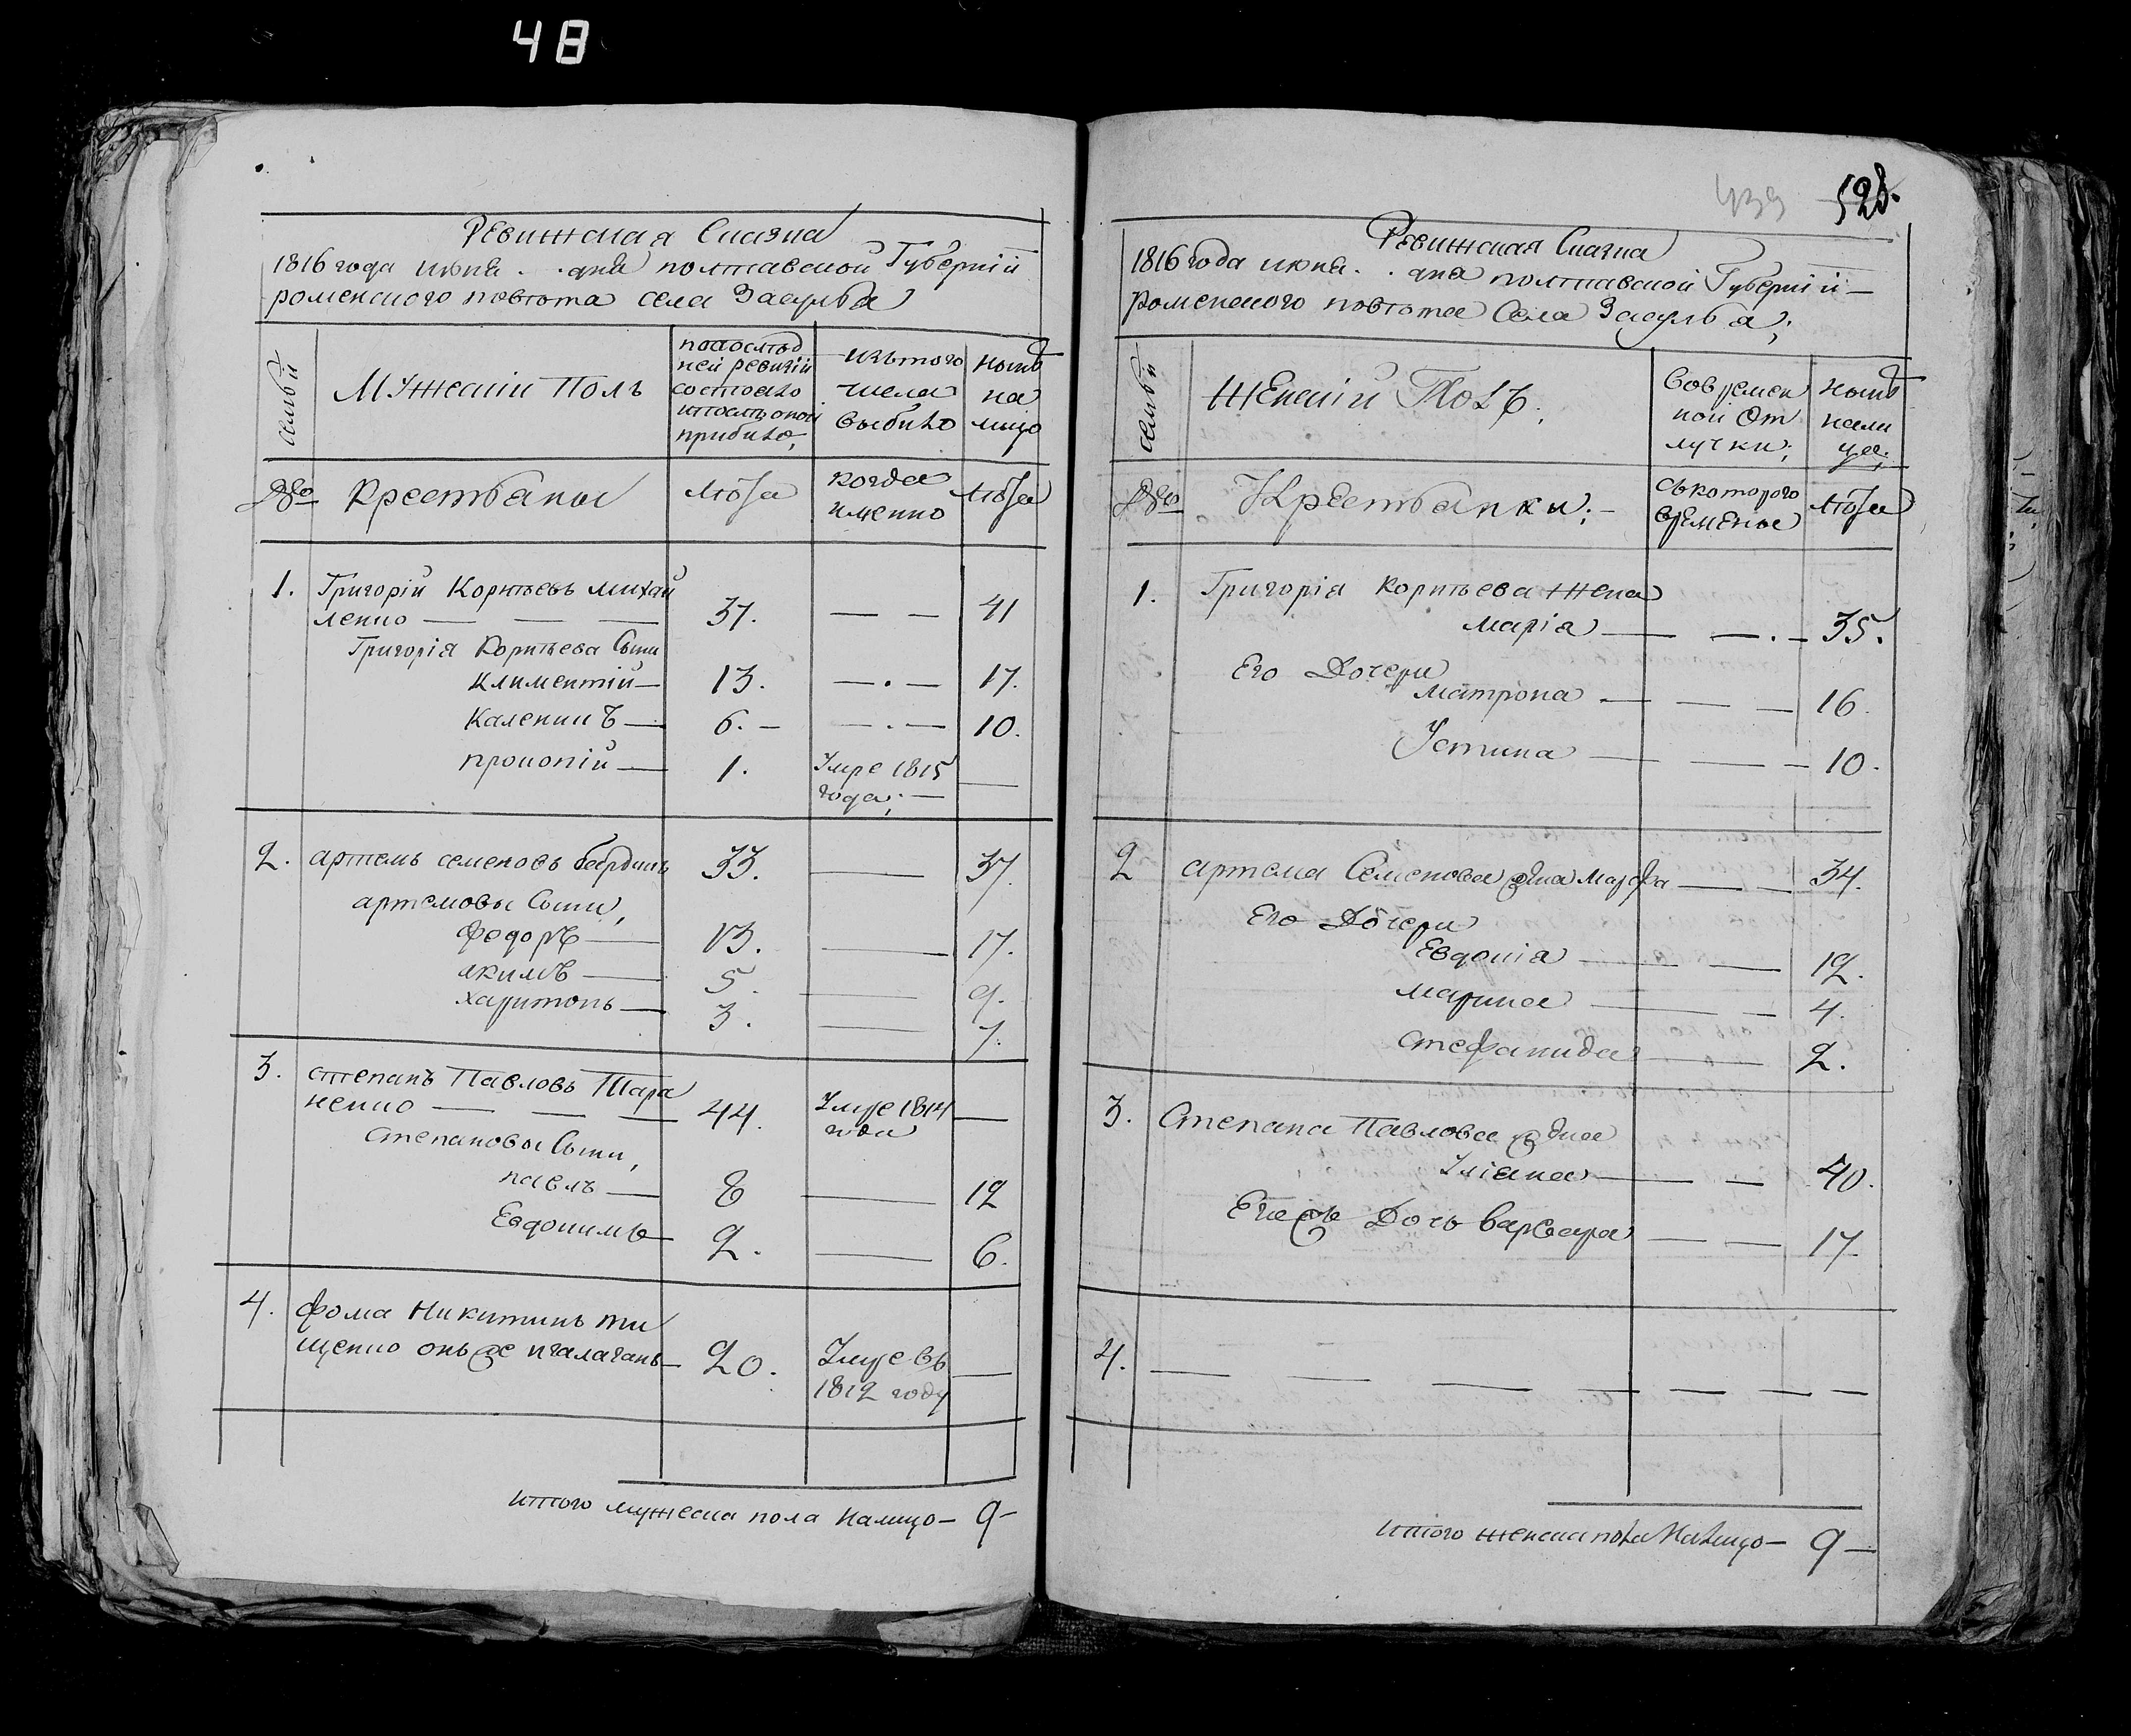 48
Ревижская Сказка
1816 года июня . . дня полтавской Губерніи
роменского повѣта села Засулья
семьи
Мужескій Полъ
попослѣд
ней ревизіи
состояло
ипослѣ оной
прибыло,
изътого
числа
выбыло
нынѣ
на
лицо
№
Крестьяны
лѣта
когда
именно
лѣта
1. Григорій Корнѣевъ михай
ленко — — — 37. — — 41
Григорія Корнѣева Сыны
Климентій — 13. — . — 17.
Каленикъ — 6. — — . — 10.
прокопій — 1. Умре 1815 —
года; —
2. артемъ семеновъ 33. — 37.
артемовы Сыны,
Федоръ — 13. — 17.
якимъ — 5. — 9.
харитонъ — 3. — 7.
3. степанъ Павловъ Тара
ненко — — — 44. Умре 1814 —
года
Степановы Сыны,
павлъ — 8 — 12
Евдокимъ — 2. — 6.
4. фома Никитинъ ти
щенко онъ же — 20. Умре въ —
1812 году
итого мужеска пола налицо — 9 —
439 528.
Ревижская Сказка
1816 года июня . . дня полтавской Губерніи —
роменского повѣта Села Засулья;
семьи
Женскій Полъ;
Вовремен
ной От
лучки;
нынѣ
нали
це;
№
Крестьянки; —
съкоторого
времены
лѣта
1. Григорія Корнѣева жена
марія — — . — 35.
Его Дочери
матрона — — — 16.
Устина — — — 10.
2 артема Семенова жена марфа — — 34.
Его Дочери
Евдокія — — 12.
марина — — 4.
стефанида — — 2.
3. Степана Павлова жена
Уліана — — 40.
Егожъ Дочь варвара — — 17.
4. — — — — — — —
итого женска пола налицо — 9 —